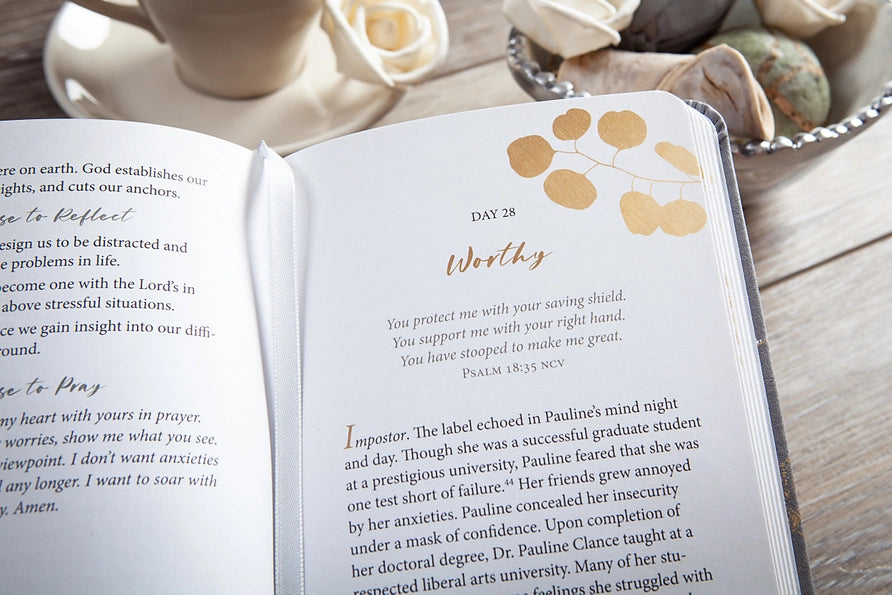 ere on earth. God establishes our
ights, and cuts our anchors.
se to Reflect
esign us to be distracted and
e problems in life.
ecome one with the Lord's in
above stressful situations.
ce we gain insight into our diffi-
ound.
se to Pray
my heart with yours in prayer.
worries, show me what you see.
viewpoint. I don't want anxieties
l any longer. I want to soar with
y. Amen.
DAY 28
Worthy
You protect me with your saving shield.
You support me with your right hand.
You have stooped to make me great.
PSALM 18:35 NCV
Impostor. The label echoed in Pauline's mind night
and day. Though she was a successful graduate student
at a prestigious university, Pauline feared that she was
one test short of failure.44 Her friends grew annoyed
by her anxieties. Pauline concealed her insecurity
under a mask of confidence. Upon completion of
her doctoral degree, Dr. Pauline Clance taught at a
respected liberal arts university. Many of her stu-
feelings she struggled with